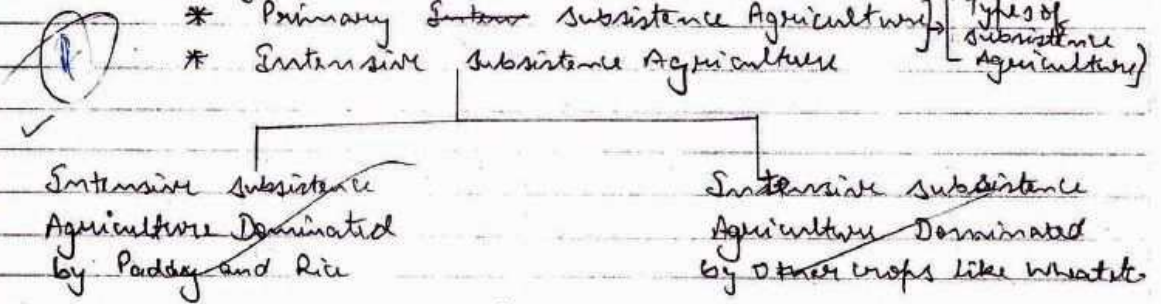 * Primary Inten subsistence Agriculture] → [Types of
subsistence
Agriculture]
* Intensive subsistence Agriculture
1
Intensive subsistence
Agriculture Dominated
by Paddy and Rice
Intensive subsistence
Agriculture Dominated
by other crops like wheat etc